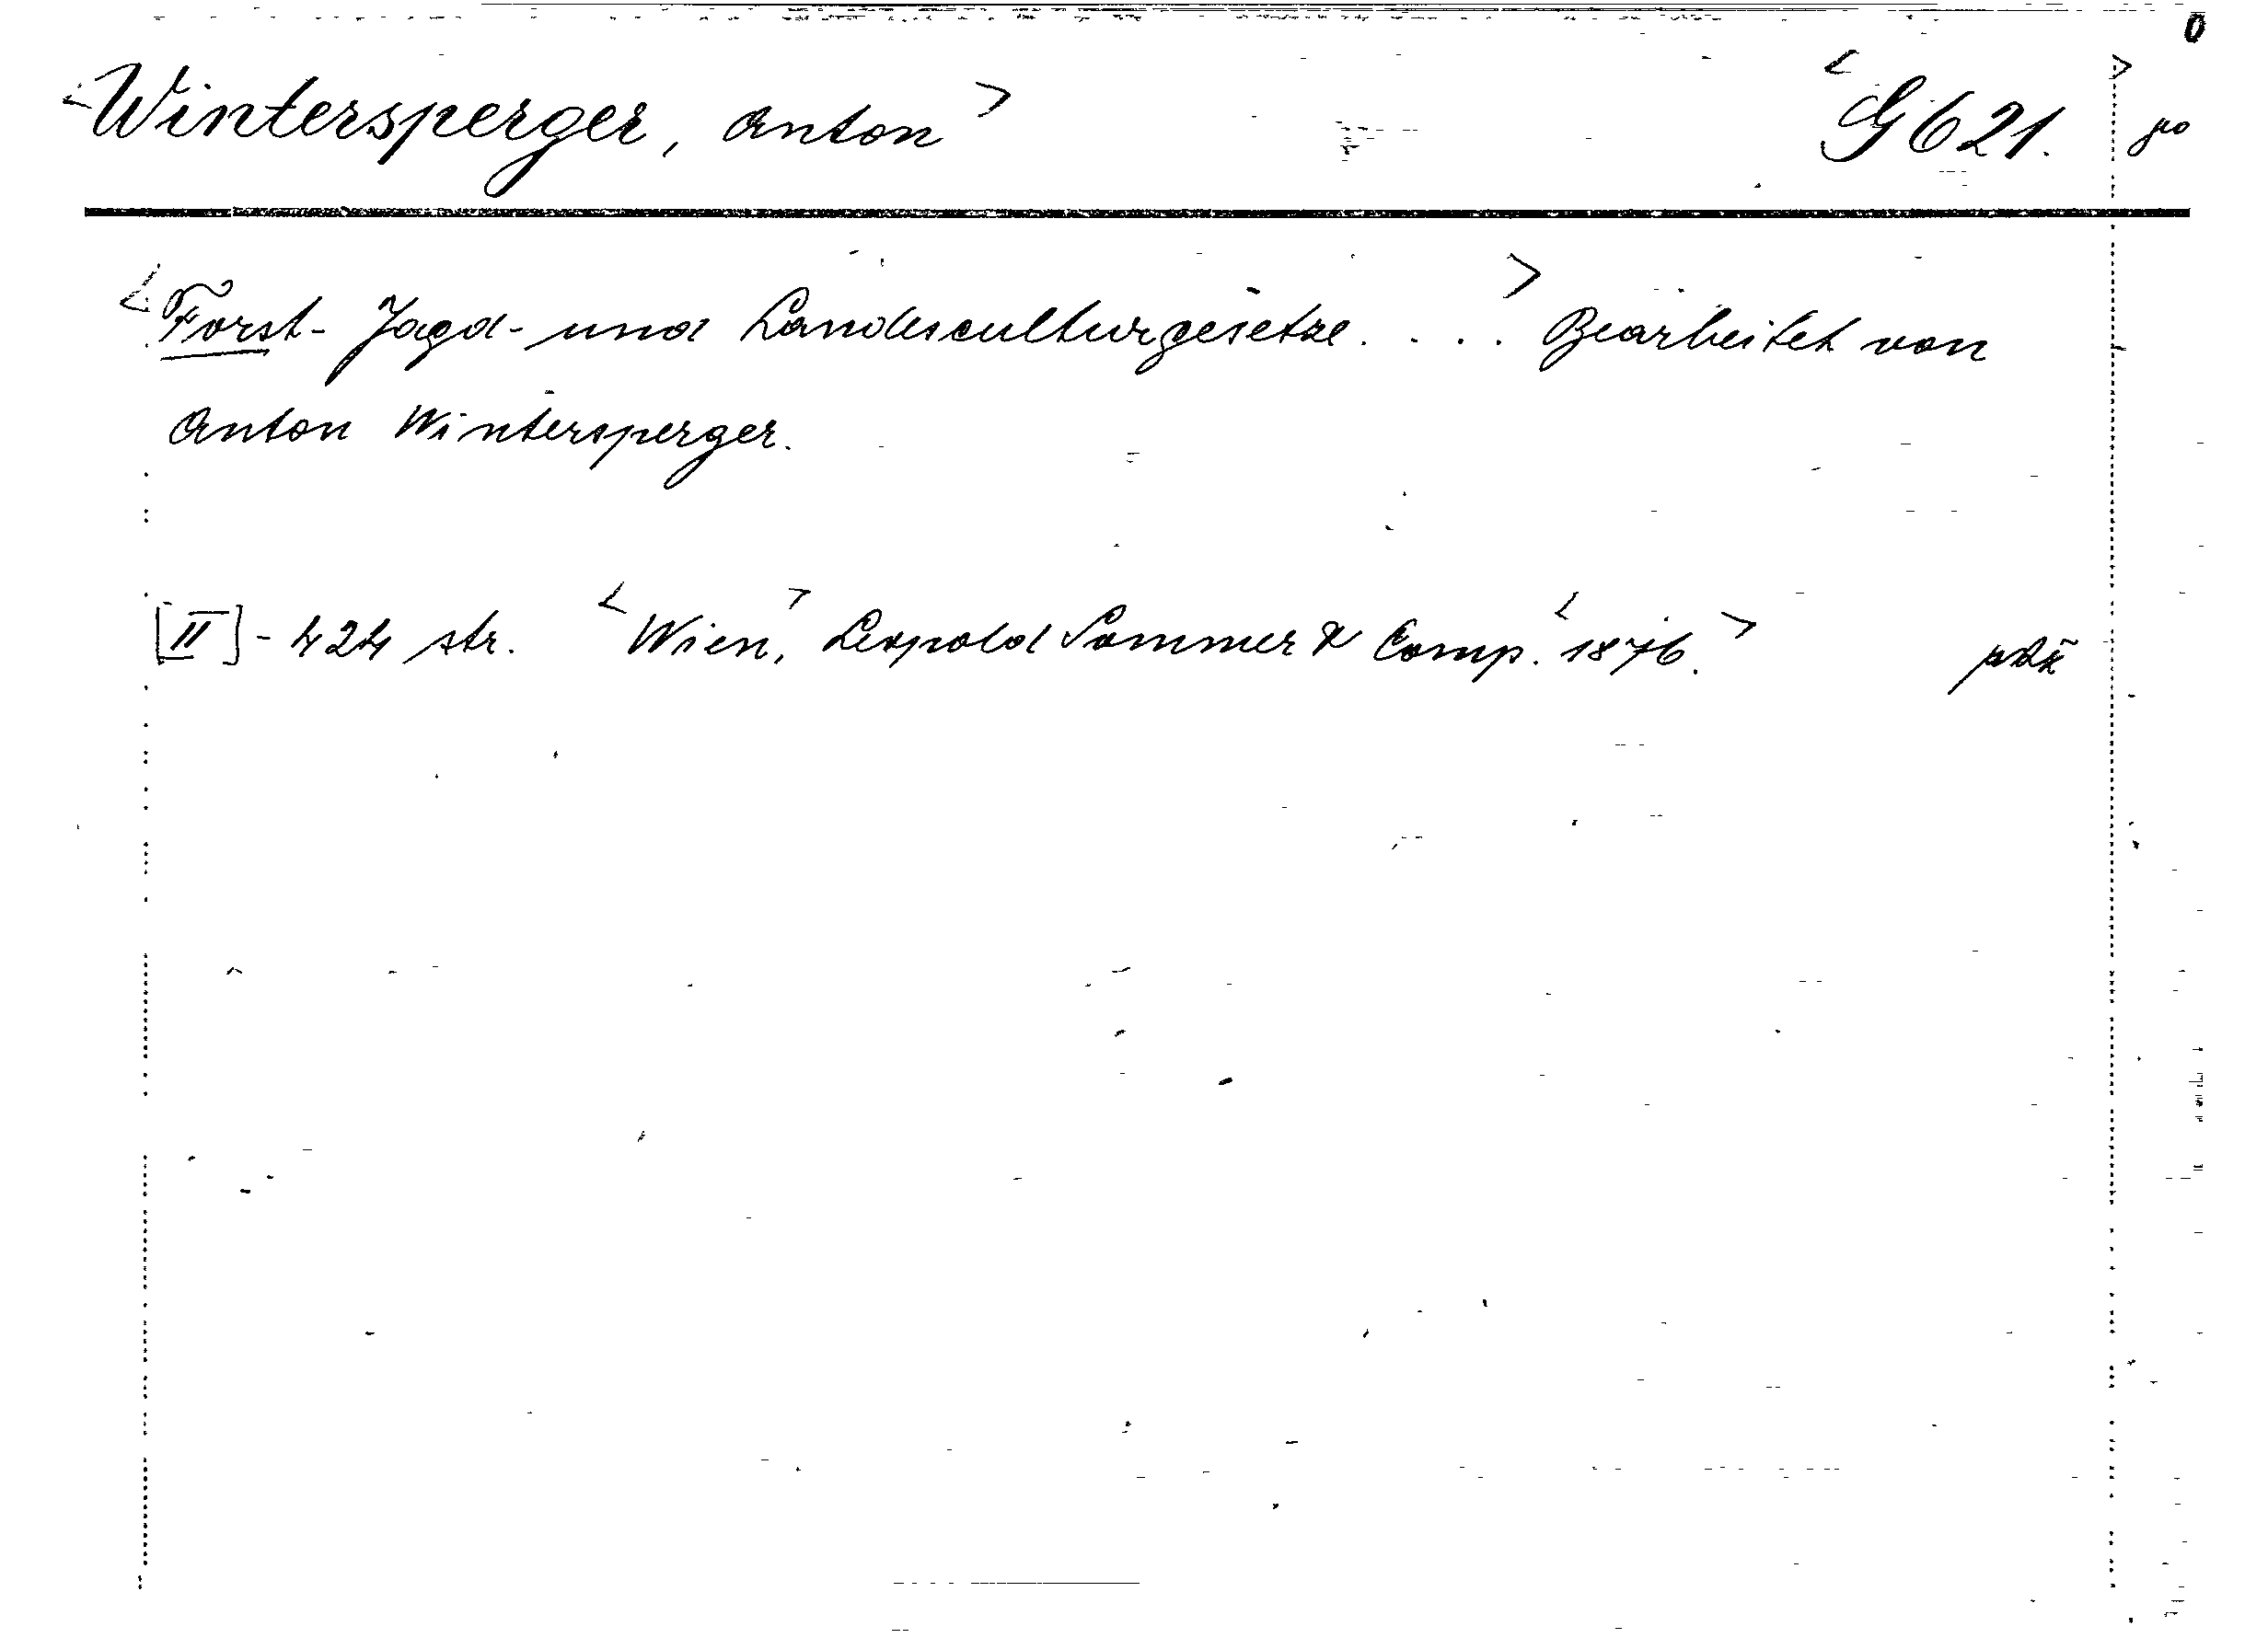 <Wintersperger, Anton> <G 621.>
<Forst- Jagd- und Landesculturgesetze. . . .> Bearbeitet von
Anton Wintersperger.
[II] - 424 str. <Wien,> Leopold Sommer & Comp. <1876.>